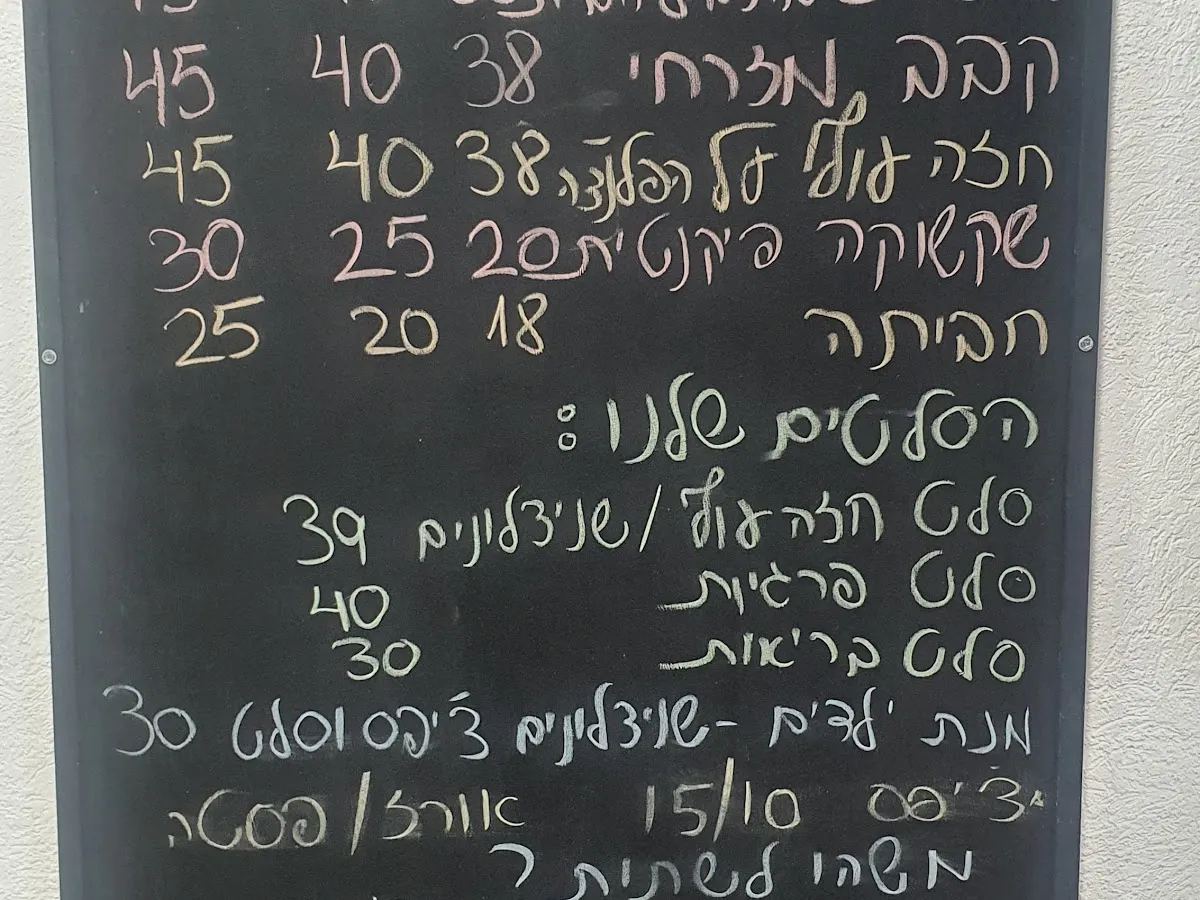 קבב מזרחי 38 40 45
חזה עוף על הפלנצ'ה 38 40 45
שקשוקה פיקנטית 20 25 30
חביתה 18 20 25
הסלטים שלנו:
סלט חזה עוף/שניצלונים 39
סלט פרגיות 40
סלט בריאות 30
מנת ילדים - שניצלונים צ'יפס וסלט 30
צ'יפס 15/10 אורז/פסטה
משהו לשתית?